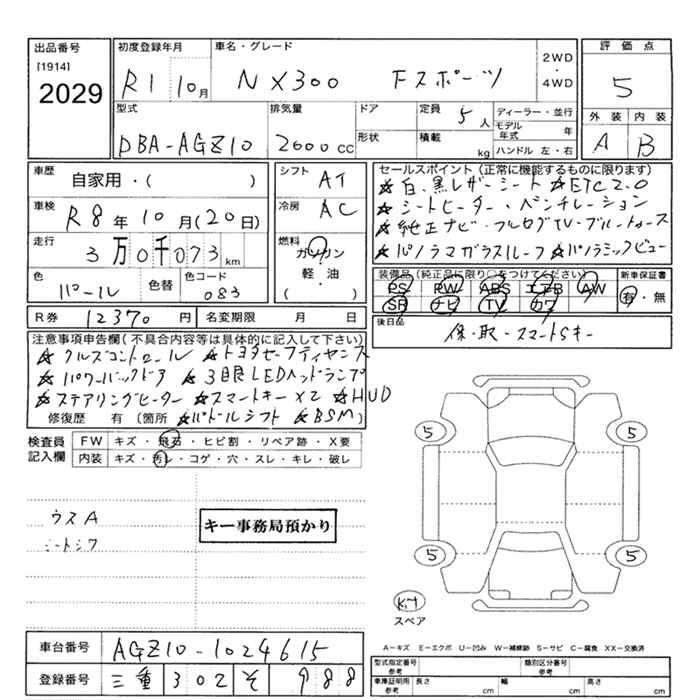 出品番号 初度登録年月 車名・グレード 2WD・4WD 評価点
[1914]
2029 R1 10月 NX300 Fスポーツ 5
型式 排気量 ドア 定員 5人 ディーラー・並行 外装 内装
形状 積載 kg モデル年式 年
DBA-AGZ10 2000cc ハンドル 左・右 A B
車歴 自家用・( ) シフト AT セールスポイント(正常に機能するものに限ります)
☆白、黒レザーシート ☆ETC2.0
車検 R8年10月(20日) 冷房 AC ☆シートヒーター、ベンチレーション
☆純正ナビ・フルセグTV・ブルートゥース
走行 3万0千073km 燃料 ガソリン ☆パノラマガラスルーフ ☆パノラミックビュー
軽・油
( )
色 パール 色替 色コード 083 装備品(純正品に限り○をつけてください) 新車保証書
PS PW ABS エアB AW 有・無
SR ナビ TV カワ
R券 12370円 名変期限 月 日 後日品 保・取・スマートSキー
注意事項申告欄(不具合内容等は具体的に記入して下さい)
☆クルーズコントロール ☆トヨタセーフティセンス
☆パワーバックドア ☆3眼LEDヘッドランプ
☆ステアリングヒーター ☆スマートキーX2 ☆HUD
修復歴 有(箇所 ☆パドルシフト ☆BSM)
検査員記入欄 FW キズ・飛石・ヒビ割・リペア跡・X要
内装 キズ・汚レ・コゲ・穴・スレ・キレ・破レ
5 5
ウスA
シートシワ
キー事務局預かり
5 5
キット
スペア
A=キズ E=エクボ U=凹み W=補修跡 S=サビ C=腐食 XX=交換済
車台番号 AGZ10-1024615
登録番号 三重 302 そ 988
型式指定番号 参考 類別区分番号 参考
車庫証明用 参考 長さ cm 幅 cm 高さ cm